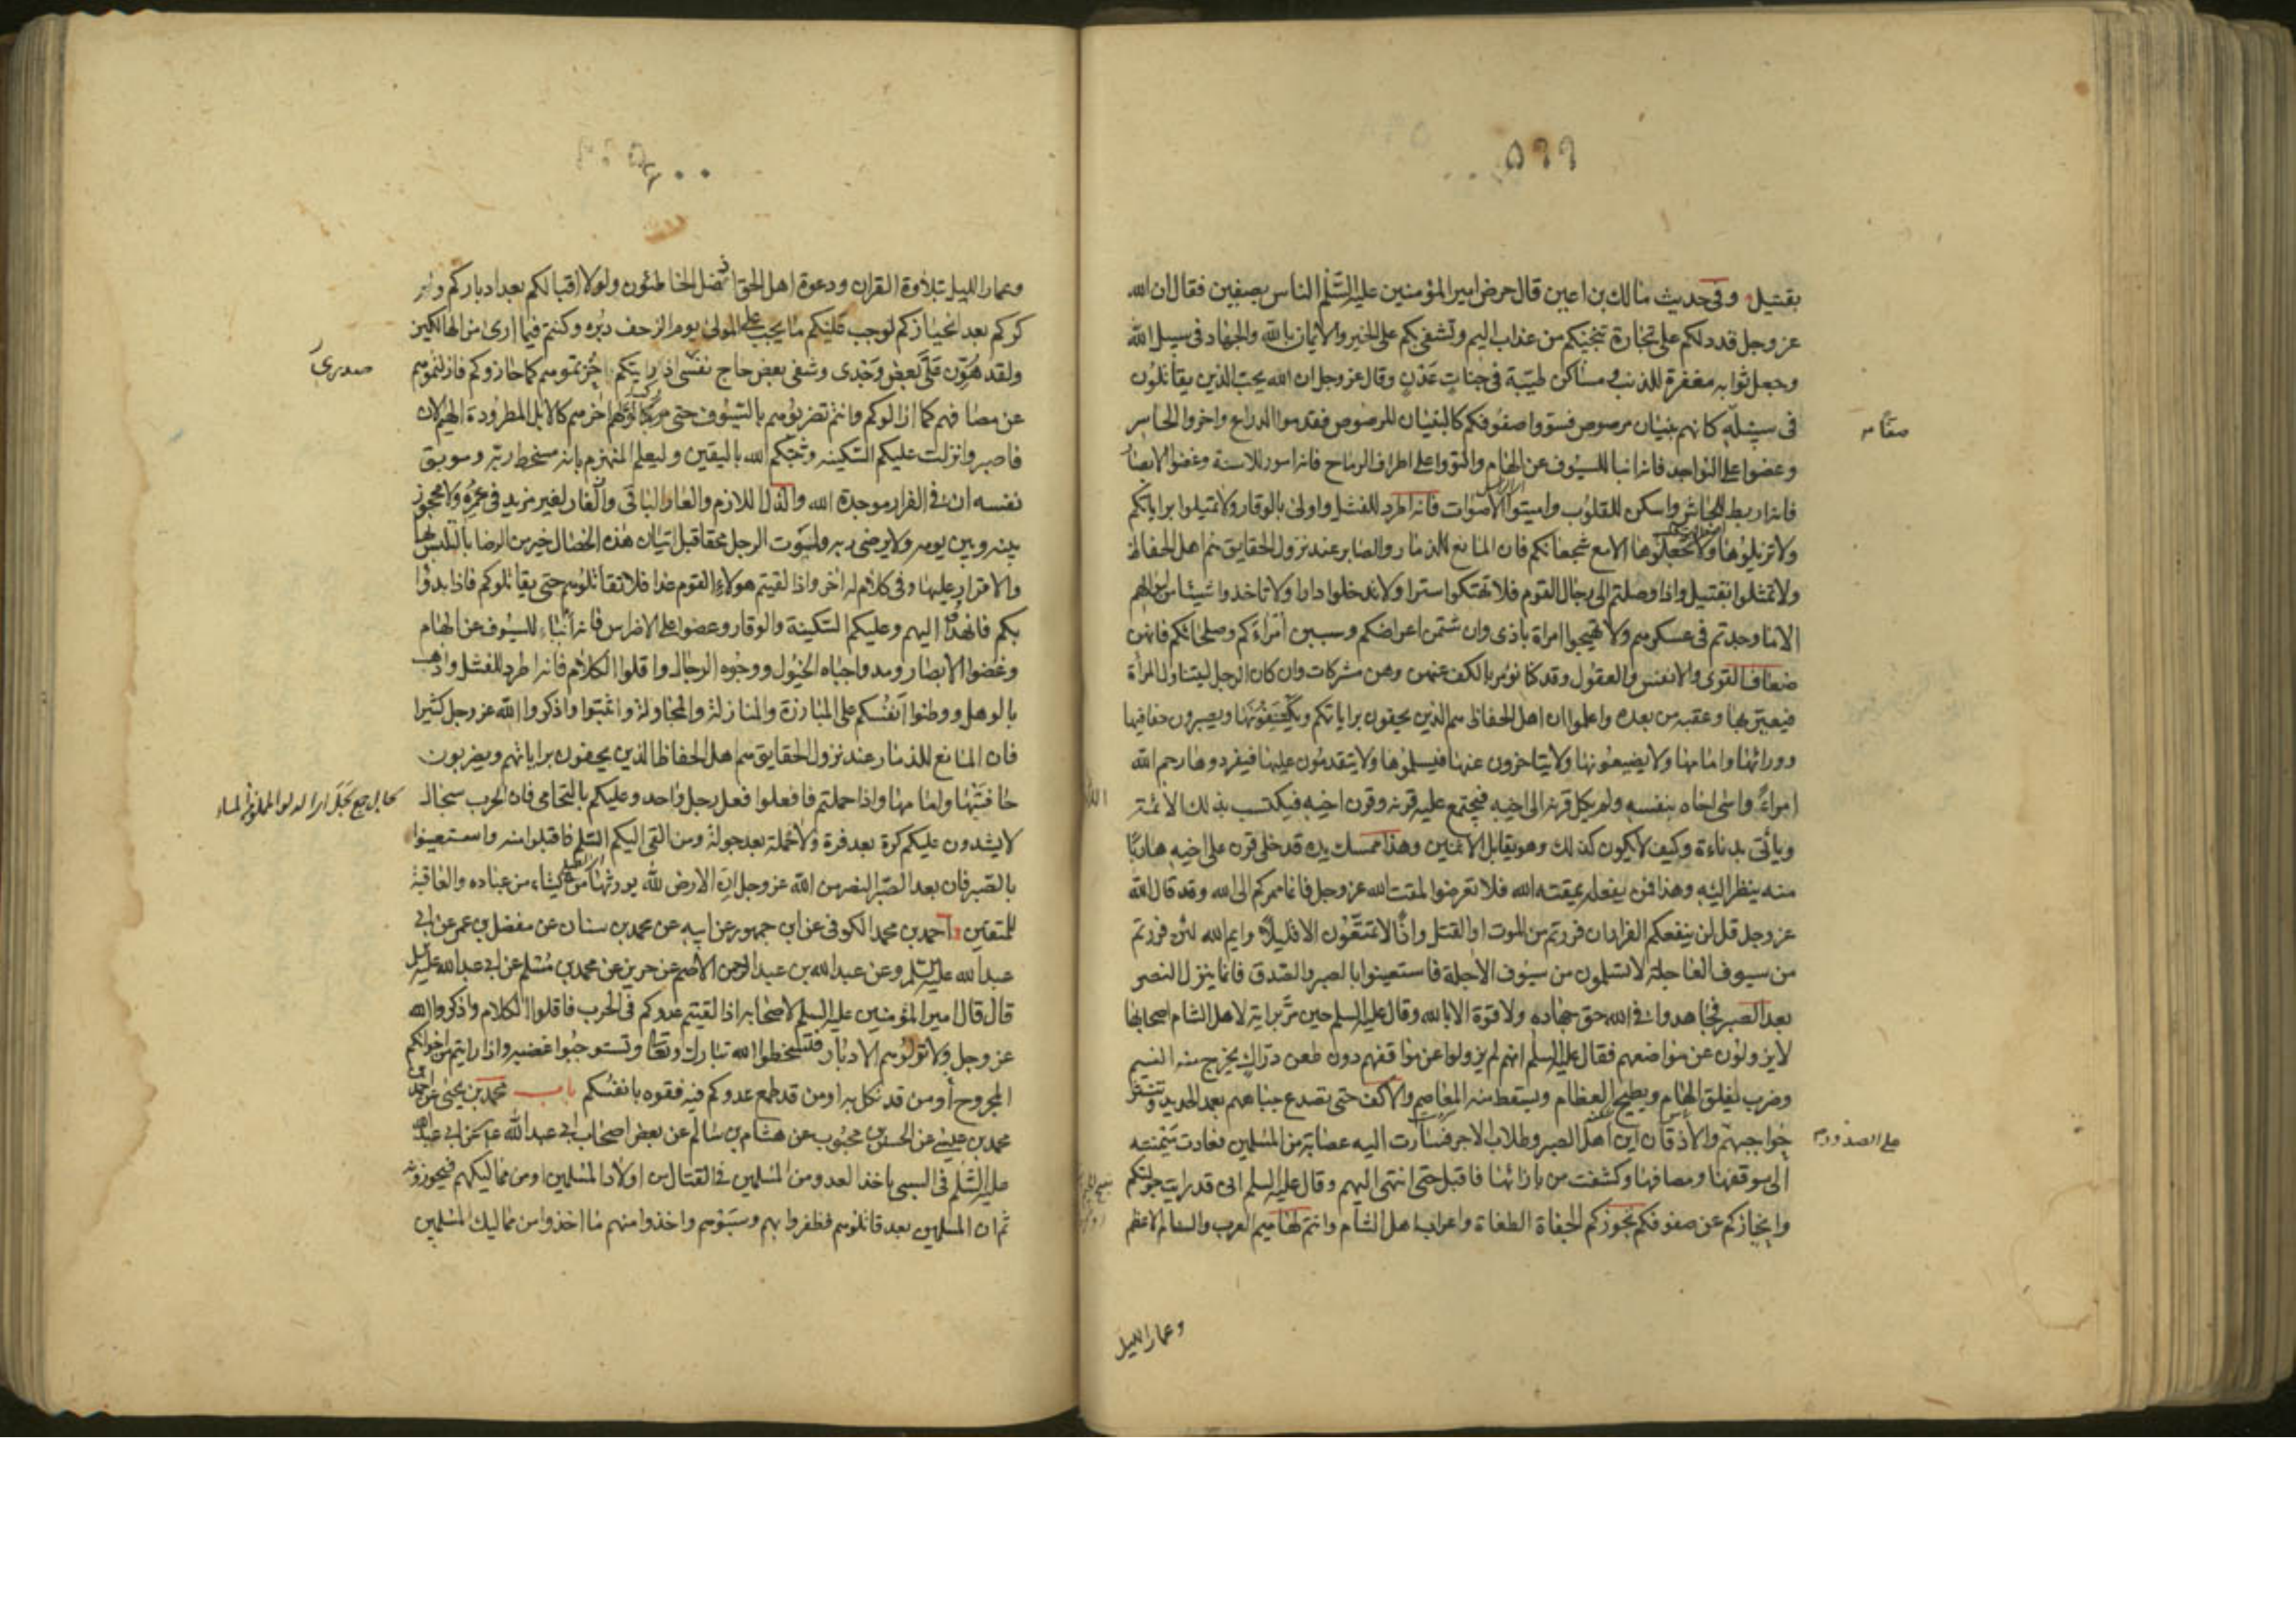 ٥٩٩
بقتيل وفي حديث مالك بن اعين قال حرض امير المؤمنين عليه السلم الناس بصفين فقال ان الله
عز وجل قد دلكم على تجارة تنجيكم من عذاب اليم وتشفي بكم على الخير والايمان بالله والجهاد في سبيل الله
وجعل ثوابه مغفرة للذنب ومساكن طيبة في جنات عدن وقال عز وجل ان الله يحب الذين يقاتلون
في سبيله كانهم بنيان مرصوص فسووا صفوفكم كالبنيان المرصوص فقدموا الدراع واخروا الحاسر
صفا
وعضوا على النواجد فانه انبا للسيوف عن الهام والتووا على اطراف الرماح فانه امور للاسنة وغضوا الابصار
فانه اربط للجاش واسكن للقلوب واميتوا الاصوات فانه اطرد للفشل واولى بالوقار ولا تميلوا براياتكم
ولا تزيلوها ولا تجعلوها الا مع شجعانكم فان المانع للذمار والصابر عند نزول الحقايق هم اهل الحفاظ
ولا تمثلوا بقتيل واذا وصلتم الى رجال القوم فلا تهتكوا سترا ولا تدخلوا دارا ولا تاخذوا شيئا من اموالهم
الا ما وجدتم في عسكرهم ولا تهيجوا امراة باذى وان شتمن اعراضكم وسببن امراءكم وصلحائكم فانهن
ضعاف القوى والانفس والعقول وقد كنا نؤمر بالكف عنهن وهن مشركات وان كان الرجل ليتناول المرأة
فيعير بها وعقبه من بعده واعلموا ان اهل الحفاظ هم الذين يحفون براياتكم ويكتنفونها ويصيرون حفافيها
وورائها وامامها ولا يضيعونها ولا يتاخرون عنها فيسلموها ولا يتقدمون عليها فيفردوها رحم الله
امراءً واسى اخاه بنفسه ولم يكل قرنه الى اخيه فيجتمع عليه قرنه وقرن اخيه فيكتسب بذلك الائمة
وياتى بدناءة وكيف لا يكون كذلك وهو يقابل الاثنين وهذا ممسك يده قد خلى قرن على اخيه هاربا
منه ينظر اليه وهذا فمن يفعله يمقته الله فلا تعرضوا لمقت الله عز وجل فانما ممركم الى الله وقد قال الله
عز وجل قل لن ينفعكم الفرار ان فررتم من الموت او القتل واذًا لا تمتعون الا قليلًا وايم الله لئن فررتم
من سيوف العاجلة لا تسلمون من سيوف الاجلة فاستعينوا بالصبر والصدق فانما ينزل النصر
بعد الصبر فجاهدوا في الله حق جهاده ولا قوة الا بالله وقال عليه السلم حين مر براية لاهل الشام اصحابها
لا يزولون عن مواضعهم فقال عليه السلم انهم لم يزولوا عن مواقفهم دون طعن دراك يخرج منه النسيم
وضرب يفلق الهام ويطيح العظام ويسقط منه المعاصم والاكف حتى تصدع جباههم بعمد الحديد وتنتثر
حواجبهم والاذقان اين اهل الصبر وطلاب الاجر فسارت اليه عصابة من المسلمين فعادت ميمنته
على الصدور
الى موقفها ومصافها وكشفت من بازائها فاقبل حتى انتهى اليهم وقال عليه السلم انى قد رايت جولتكم
وانحيازكم عن صفوفكم تحوزكم الجفاة الطغاة واعراب اهل الشام وانتم لهاميم العرب والسنام الاعظم
وعمار الليل
وعمار الليل بتلاوة القران ودعوة اهل الحق اذ ضل الخاطئون ولولا اقبالكم بعد ادباركم و
كركم بعد انحيازكم لوجب عليكم ما يجب على المولى يوم الزحف دبره وكنتم فيما ارى من الهالكين
ولقد هون علي بعض وجدى وشفى بعض حاج نفسى اذ رايتكم حزتموهم كما حازوكم فازلتموهم
صدري
عن مصافهم كما ازالوكم وانتم تضربوهم بالسيوف حتى ركب اولهم اخرهم كالابل المطرودة الهيم الان
فاصبروا نزلت عليكم السكينة وثبتكم الله باليقين وليعلم المنهزم بانه مسخط ربه وموبق
نفسه ان في الفرار موجدة الله والذل اللازم والعار الباقى وان الفار لغير مزيد في عمره ولا محجوز
بينه وبين يومه ولا يرضى ربه ولموت الرجل محقا قبل اتيان هذه الخصال خير من الرضا بالتلبس بها
والاقرار عليها وفى كلام له اخر واذا لقيتم هولاء القوم غدا فلا تقاتلوهم حتى يقاتلوكم فاذا بدؤا
بكم فانهدوا اليهم وعليكم السكينة والوقار وعضوا على الاضراس فانه انباء للسيوف عن الهام
وغضوا الابصار ومدوا جباه الخيول ووجوه الرجال واقلوا الكلام فانه اطرد للفشل واذهب
بالوهل ووطنوا انفسكم على المبارزة والمنازلة والمجاولة واثبتوا واذكروا الله عز وجل كثيرا
فان المانع للذمار عند نزول الحقايق هم اهل الحفاظ الذين يحفون براياتهم ويضربون
حافتيها وامامها واذا حملتم فافعلوا فعل رجل واحد وعليكم بالتحامى فان الحرب سجال
لا يشدون عليكم كرة بعد فرة ولا حملة بعد جولة ومن القى اليكم السلم فاقبلوا منه واستعينوا
بالصبر فان بعد الصبر النصر من الله عز وجل ان الارض لله يورثها من يشاء من عباده والعاقبة
للمتقين احمد بن محمد الكوفى عن ابن جمهور عن ابيه عن محمد بن سنان عن مفضل بن عمر عن ابي
عبد الله عليه السلم وعن عبد الله بن عبد الرحمن الاصم عن حريز عن محمد بن مسلم عن ابي عبد الله عليه السلم
قال قال امير المؤمنين عليه السلم لاصحابه اذا لقيتم عدوكم في الحرب فاقلوا الكلام واذكروا الله
عز وجل ولا تولوهم الادبار فتسخطوا الله تبارك وتعالى وتستوجبوا غضبه واذا رايتم من اخوانكم
المجروح أو من قد نكل به او من قد طمع عدوكم فيه فقوه بانفسكم باب محمد بن يحيى عن احمد بن
محمد بن عيسى عن الحسن بن محبوب عن هشام بن سالم عن بعض اصحاب ابي عبد الله عن ابي عبد الله
عليه السلم في السبي ياخذ العدو من المسلمين في القتال من اولاد المسلمين او من مماليكهم فيحوزونه
ثم ان المسلمين بعد قاتلوهم فظفروا بهم وسبوهم واخذوا منهم ما اخذوا من مماليك المسلمين